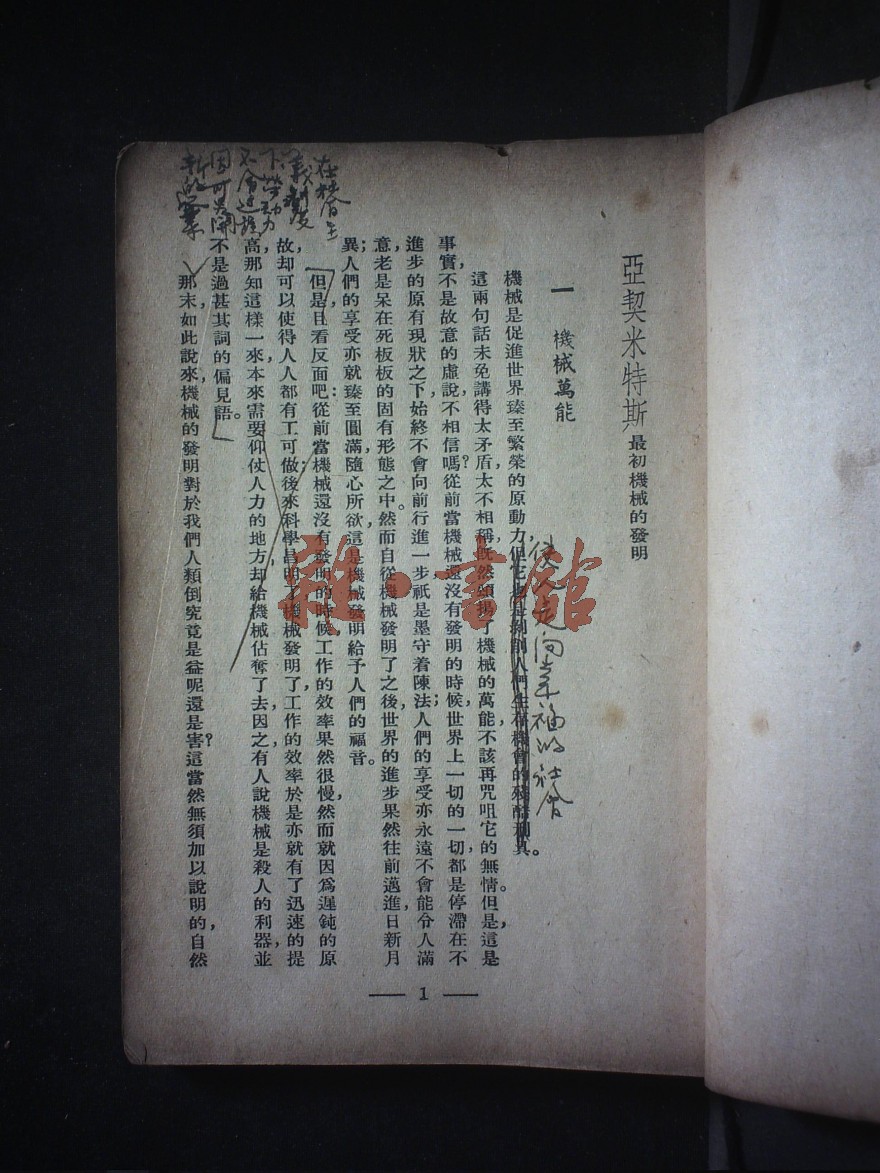 亞契米特斯 最初機械的發明
一 機械萬能
機械是促進世界臻至繁榮的原動力但它也是剝削人們生存機會的殘酷利具。
使人走向幸福的社會
這兩句話未免講得太矛盾太不相稱既然頌揚了機械的萬能不該再咒咀它的無情。但是,這是
事實,不是故意的虛說,不相信嗎?從前當機械還沒有發明的時候,世界上一切的一切,都是停滯在不
進步的原有現狀之下,始終不會向前行進一步祇是墨守着陳法;人們的享受亦永遠不會能令人滿
意,老是呆在死板板的固有形態之中。然而自從機械發明了之後,世界的進步果然往前邁進,日新月
異;人們的享受亦就臻至圓滿,隨心所欲,這是機械發明給予人們的福音。
但是,且看反面吧:從前當機械還沒有發明的時候,工作的效率果然很慢,然而就因爲遲鈍的原
故,却可以使得人人都有工可做;後來科學昌明了,機械發明了,工作的效率於是亦就有了迅速的提
高,那知這樣一來,本來需要仰仗人力的地方,却給機械佔奪了去,因之有人說機械是殺人的利器,並
不是過甚其詞的偏見語。
那末,如此說來,機械的發明對於我們人類倒究竟是益呢還是害?這當然無須加以說明的,自然
在社會主
義制度
下勞動力
不會過剩
因可以開
新的事業
— 1 —